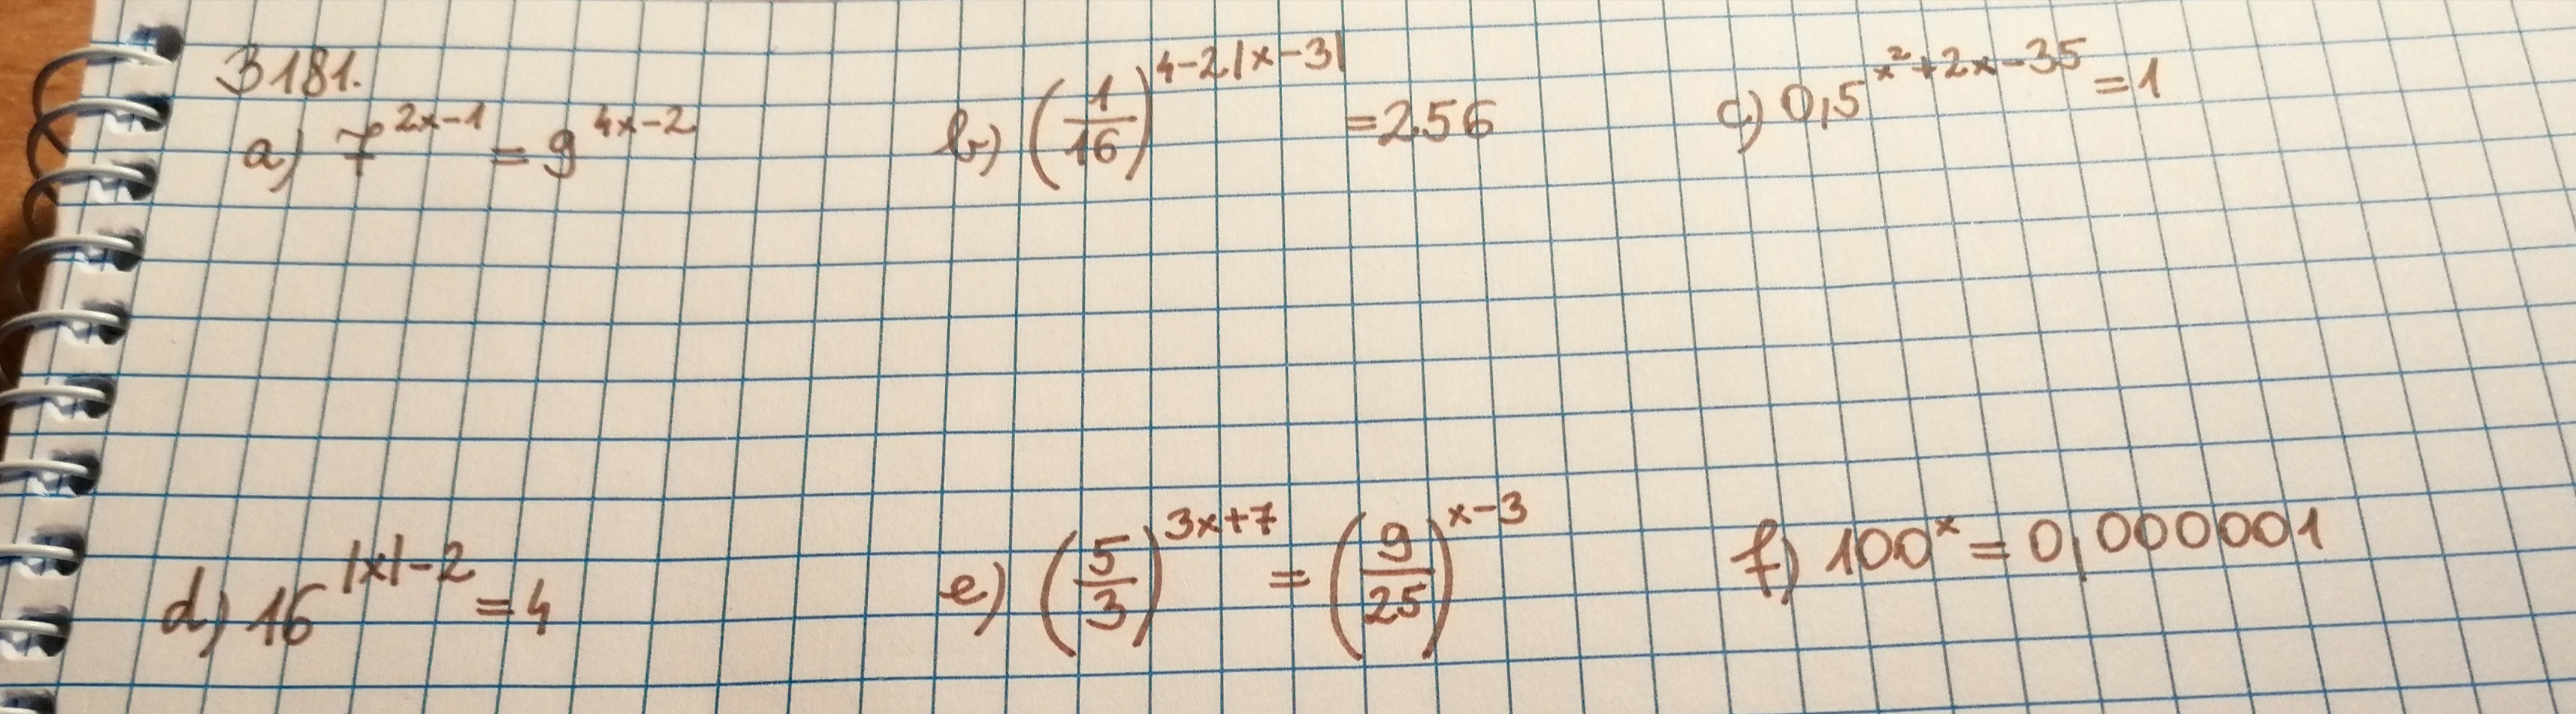 3181.
a) 7^{2x-1} = 9^{4x-2}
b) (1/16)^{4-2|x-3|} = 256
c) 0,5^{x²+2x-35} = 1
d) 16^{|x|-2} = 4
e) (5/3)^{3x+7} = (9/25)^{x-3}
f) 100^x = 0,000001